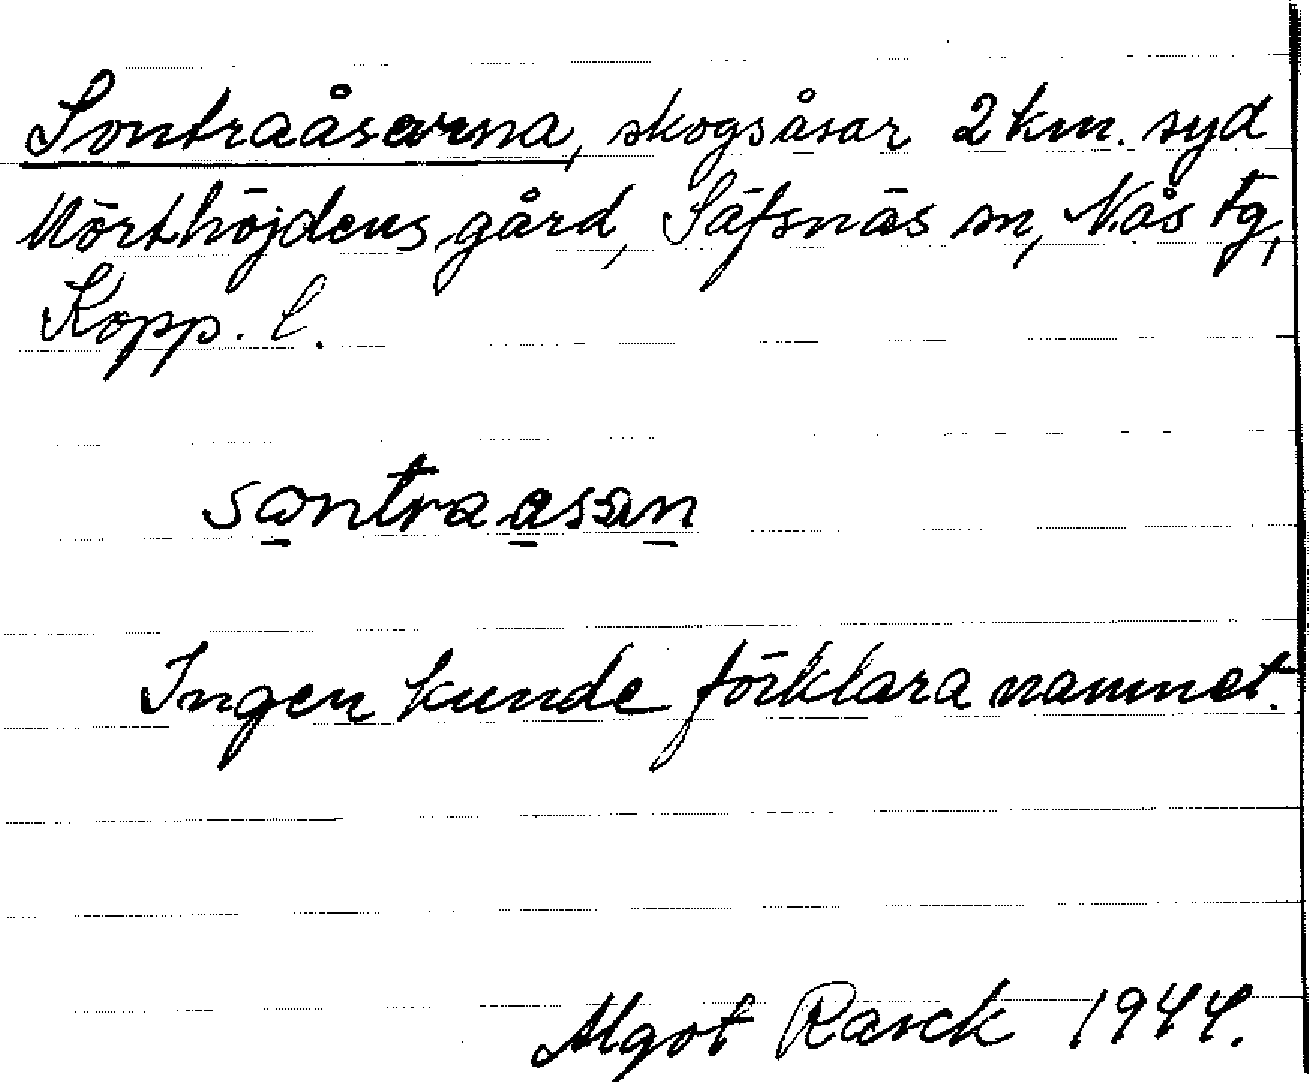 Sontraåsarna, skogsåsar 2 km. syd
Mörthöjdens gård, Säfsnäs sn, Nås tg,
Kopp. l.
Ingen kunde förklara namnet.
Algot Rasck 1944.